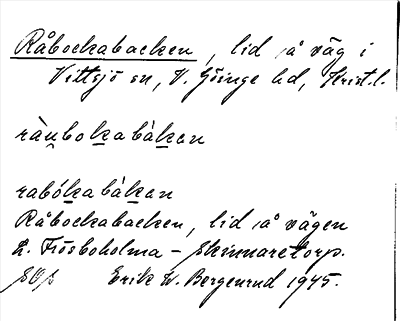 Råbockabacken, lid å väg i
Vittsjö sn, V. Göinge hd, Krist.l.
ràu̯bokabàken
rabókabàken
Råbockabacken, lid å vägen
L. Frösboholma - Skinnaretorp.
Erik W. Bergenrud 1945.